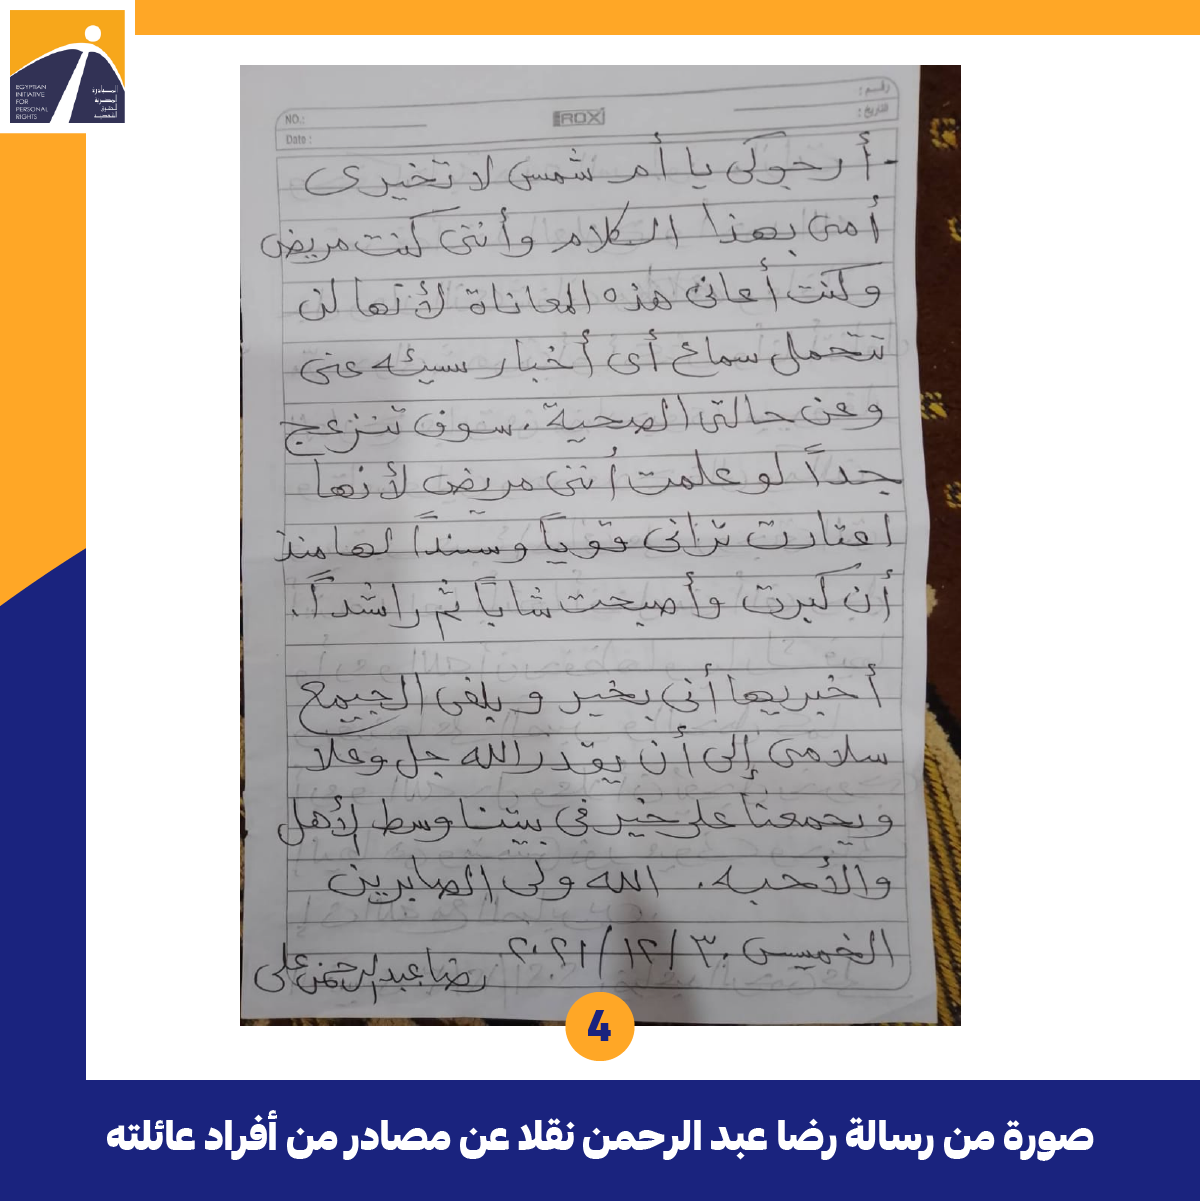 EGYPTIAN
INITIATIVE
FOR
PERSONAL
RIGHTS
المبادرة
المصرية
للحقوق
الشخصية
رقم :
التاريخ :
ROX
NO.:
Date :
- أرجوكى يا أم شمس لا تخيرى
أمى بهذا الكلام وأننى كنت مريض
وكنت أعانى هذه المعاناة لأنها لن
تتحمل سماع أى أخبار سيئه عنى
وعن حالتى الصحية . سوف تنزعج
جداً لو علمت أننى مريض لأنها
اعتادت ترانى قوياً وسنداً لها منذ
أن كبرت وأصبحت شاباً ثم راشداً .
أخبريها أنى بخير وبلغى الجميع
سلامى إلى أن يقدر الله جل وعلا
ويجمعنا على خير فى بيتنا وسط الأهل
والأحبه . الله ولى الصابرين
الخميس ٣٠ / ١٢ / ٢٠٢١
رضا عبد الرحمن على
4
صورة من رسالة رضا عبد الرحمن نقلا عن مصادر من أفراد عائلته